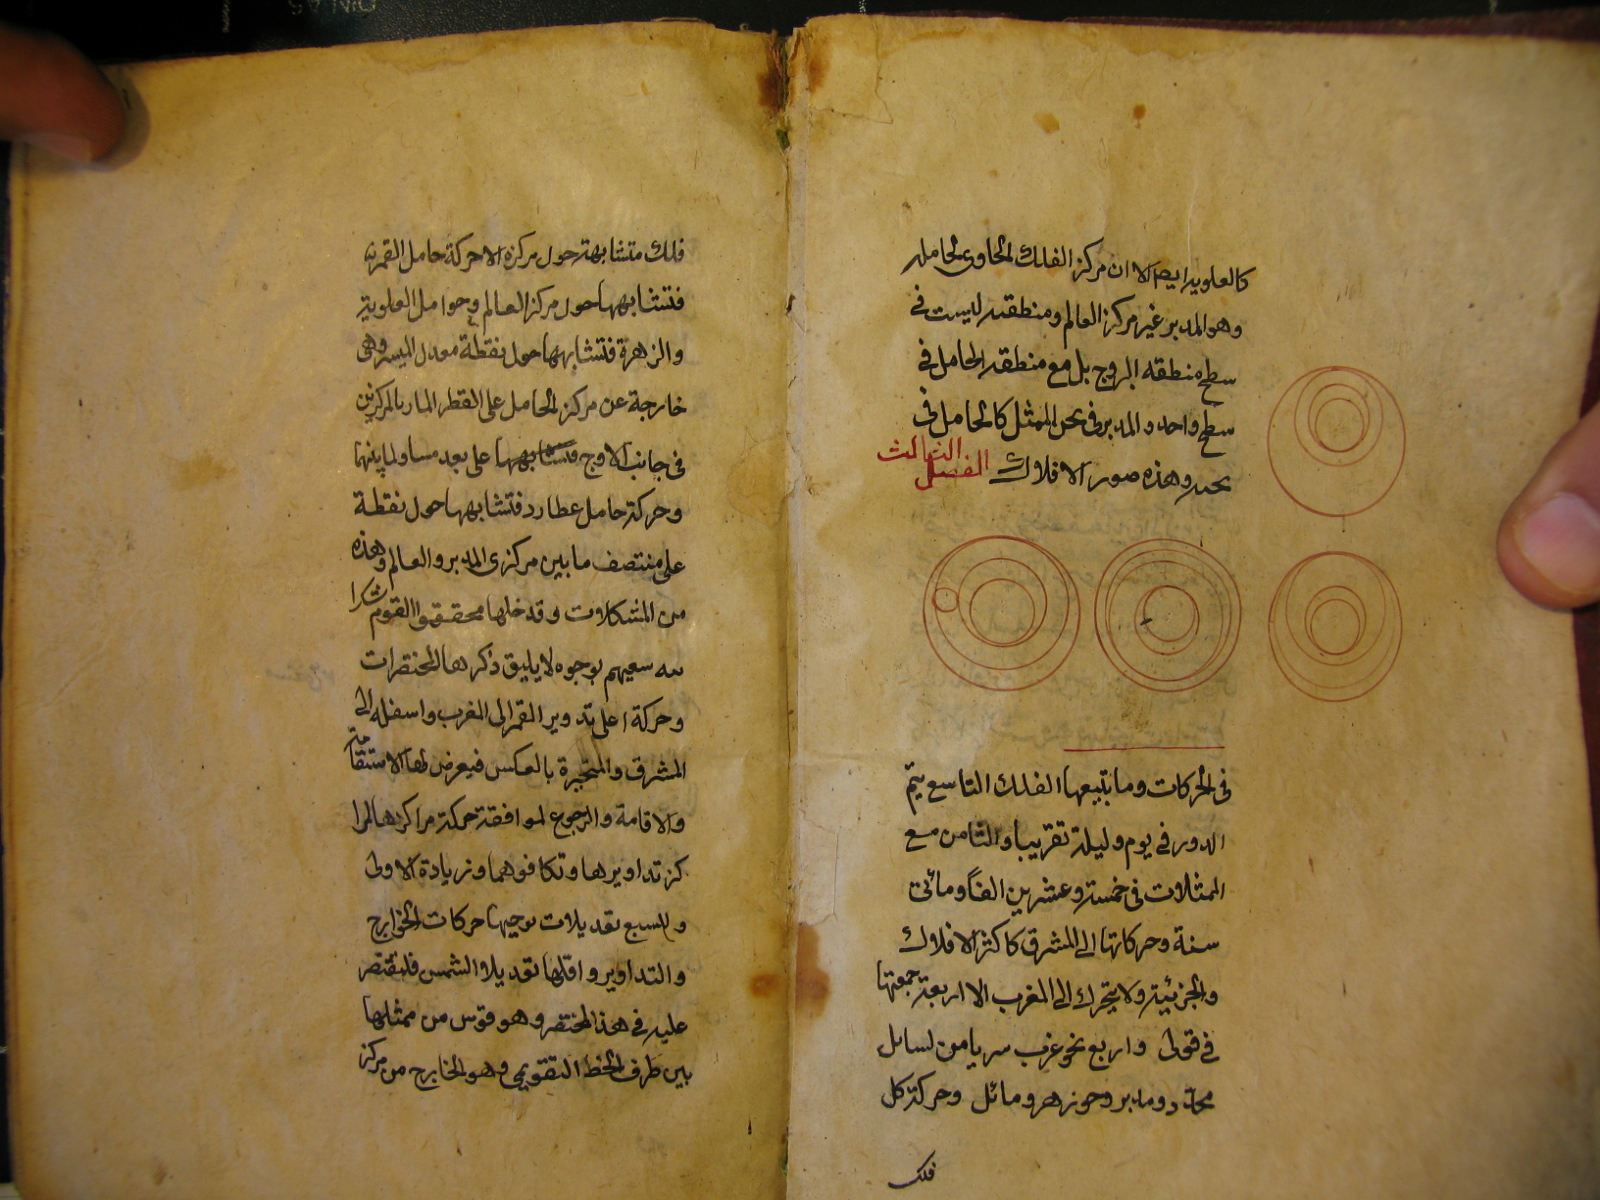 كالعلوية ايضا الا ان مركز الفلك الحاوى لحامله
وهو المدير غير مركز العالم ومنطقته ليست فى
سطح منطقة البروج بل مع منطقة الحامل فى
سطح واحد والمدير فى ثخن الممثل كالحامل فى
ثخنه وهذه صور الافلاك الفصل الثالث
فى الحركات وما يتبعها الفلك التاسع يتم
الدور فى يوم وليلة تقريبا والثامن مع
الممثلات فى خمسة وعشرين الفا ومائتى
سنة وحركاتها الى المشرق كاكثر الافلاك
والجزئية ولا يتحرك الى المغرب الا اربعة جمعتها
فى قولى واربع نحو غرب سريا من لسائل
محدد ومدير وجوزهر ومائل وحركة كل
فلك
فلك متشابهة حول مركزه الا حركة حامل القمر
فتشابهها حول مركز العالم وحوامل العلوية
والزهرة فتشابهها حول نقطة معدل المسير وهى
خارجة عن مركز الحامل على القطر المار بالمركزين
فى جانب الاوج فتشابهها على بعد مساو لما بينهما
وحركة حامل عطارد فتشابهها حول نقطة
على منتصف ما بين مركزى المدير والعالم وهذه
من المشكلات وقد حلها محققوا القوم شكرا
لله سعيهم بوجوه لا يليق ذكرها المختصرات
وحركة اعلى تدوير القمر الى الغرب واسفله الى
المشرق والمتحيرة بالعكس فيعرض لها الاستقامة
والاقامة والرجوع لموافقة حركة مراكزها لمرا
كز تداويرها وتكافوهما وزيادة الاولى
وللسبع تعديلات توجبها حركات الخوارج
والتداوير واقلها تعديلا الشمس فلنقتصر
عليه فى هذا المختصر وهو قوس من ممثلها
بين طرف الخط التقويمى وهو الخارج من مركز